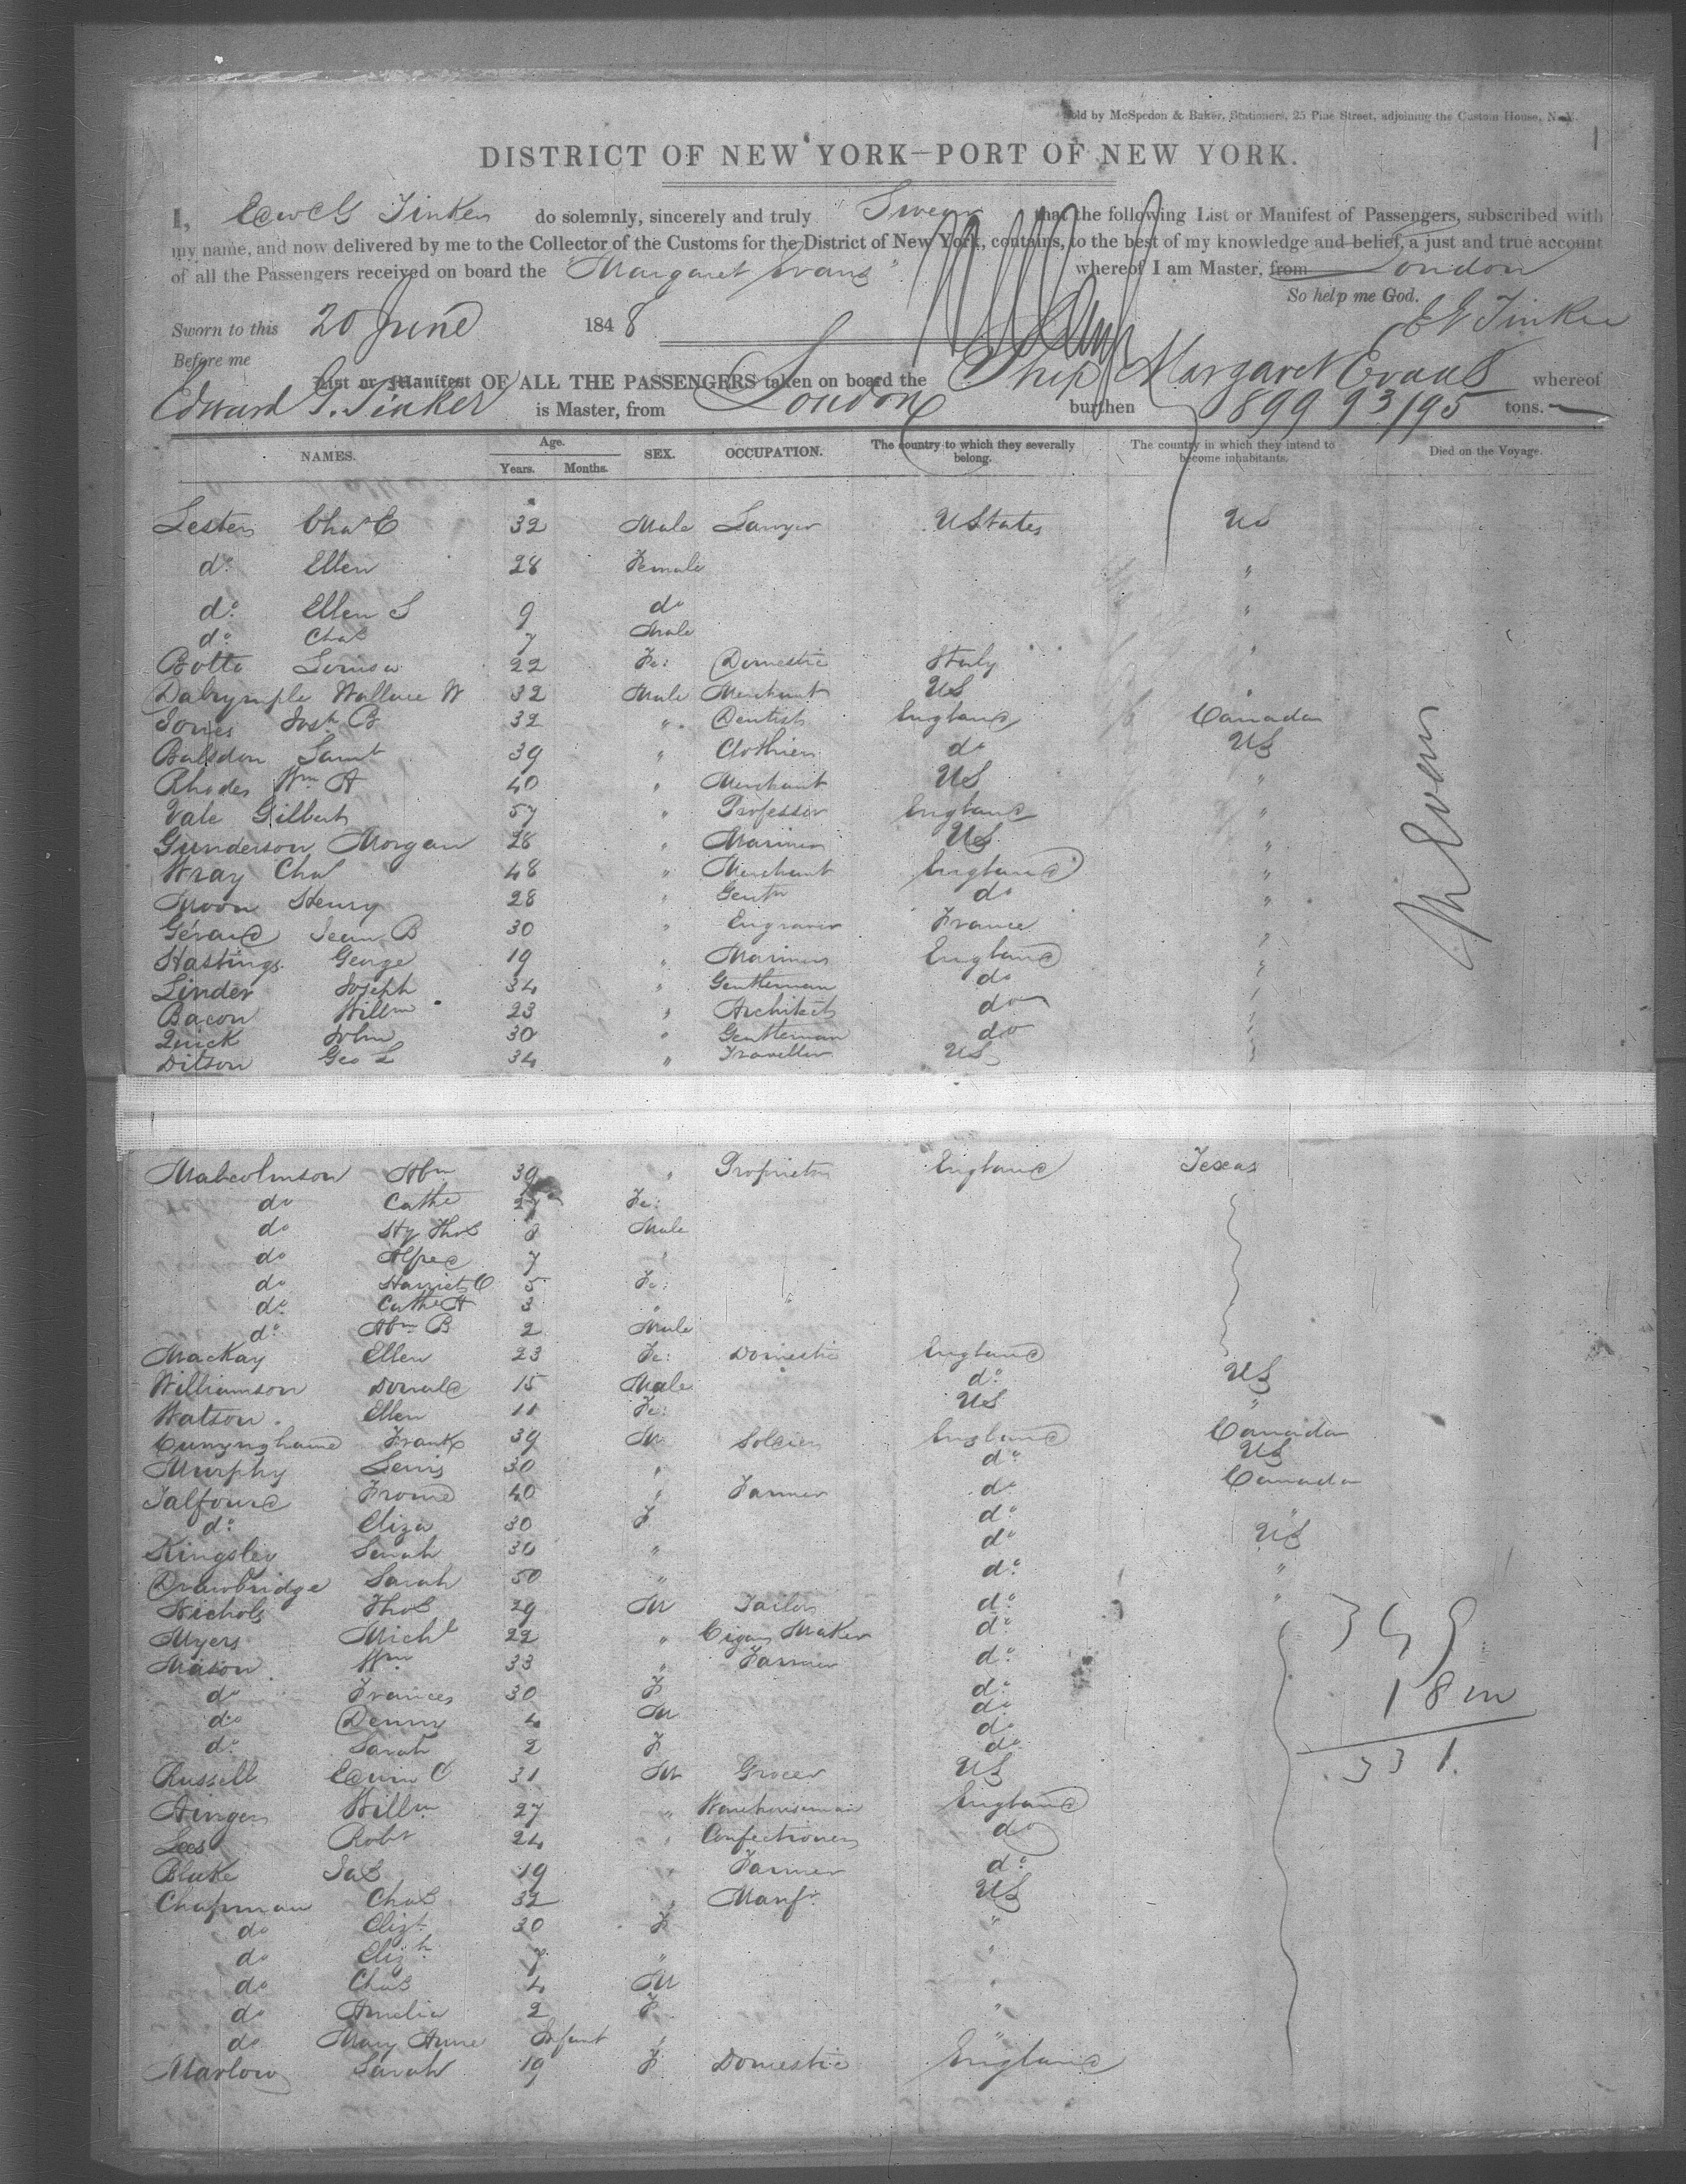 Sold by McSpedon & Baker, Stationers, 25 Pine Street, adjoining the Custom House, N. Y.
1
DISTRICT OF NEW YORK—PORT OF NEW YORK.
I, Edwd G Tinker do solemnly, sincerely and truly Swear that the following List or Manifest of Passengers, subscribed with
my name, and now delivered by me to the Collector of the Customs for the District of New York, contains, to the best of my knowledge and belief, a just and true account
of all the Passengers received on board the "Margaret Evans" whereof I am Master, from London
So help me God.
Sworn to this 20 June 1848 EG Tinker
Before me
List or Manifest OF ALL THE PASSENGERS taken on board the Ship Margaret Evans whereof
Edward G. Tinker is Master, from London burthen 899 93/95 tons.
NAMES. Age. Years. Months. SEX. OCCUPATION. The country to which they severally belong. The country in which they intend to become inhabitants. Died on the Voyage.
Lester Chas E 32 Male Lawyer UStates US
do Ellen 28 Female "
do Ellen S 9 do "
do Chas 7 Male
Botto Louisa 22 Fe: Domestic Italy "
Dalrymple Wallace W 32 Male Merchant US "
Jones Josh B 32 " Dentist England Canada
Balsdon Saml 39 " Clothier do US
Rhodes Wm A 40 " Merchant US "
Vale Gilbert 57 " Professor England "
Gunderson Morgan 28 " Mariner US "
Wray Chas 48 " Merchant England "
Moon Henry 28 " Gentn do "
Gérard Jean B 30 " Engraver France "
Hastings George 19 " Mariner England "
Linder Joseph 34 " Gentleman do "
Bacon Willm 23 " Architect do "
Quick John 30 " Gentleman do "
Ditson Geo L 34 " Traveller US "
Malcolmson Abm 39 " Proprietor England Texas
do Cathe 27 Fe:
do Hy Thos 8 Male
do Alfred 7 "
do Harriet C 5 Fe:
do Cathe A 3 "
do Abm B 2 Male
MacKay Ellen 23 Fe: Domestic England
Williamson Donald 15 Male do US
Watson Ellen 11 Fe: US "
Cunynghame Frank 39 M Soldier England Canada
Murphy Lewis 30 " do US
Talfourd Frome 40 " Farmer do Canada
do Eliza 30 F do "
Kingsley Sarah 30 " do US
Drawbridge Sarah 50 " do "
Nichols Thos 29 M Tailor do "
Myers Michl 22 " Cigar Maker do
Mason Wm 33 " Farmer do
do Frances 30 F do
do Denny 4 M do
do Sarah 2 F do
Russell Edwin C 31 M Grocer US
Ainger Willm 27 " Warehouseman England
Lees Robt 24 " Confectioner do
Blake Jas 19 " Farmer do
Chapman Chas 32 " Manfr US
do Elizh 30 F "
do Elizh 7 " "
do Chas 4 M "
do Amelia 2 F "
do Mary Anne Infant " "
Marlow Sarah 19 F Domestic England
349
18 in
331.